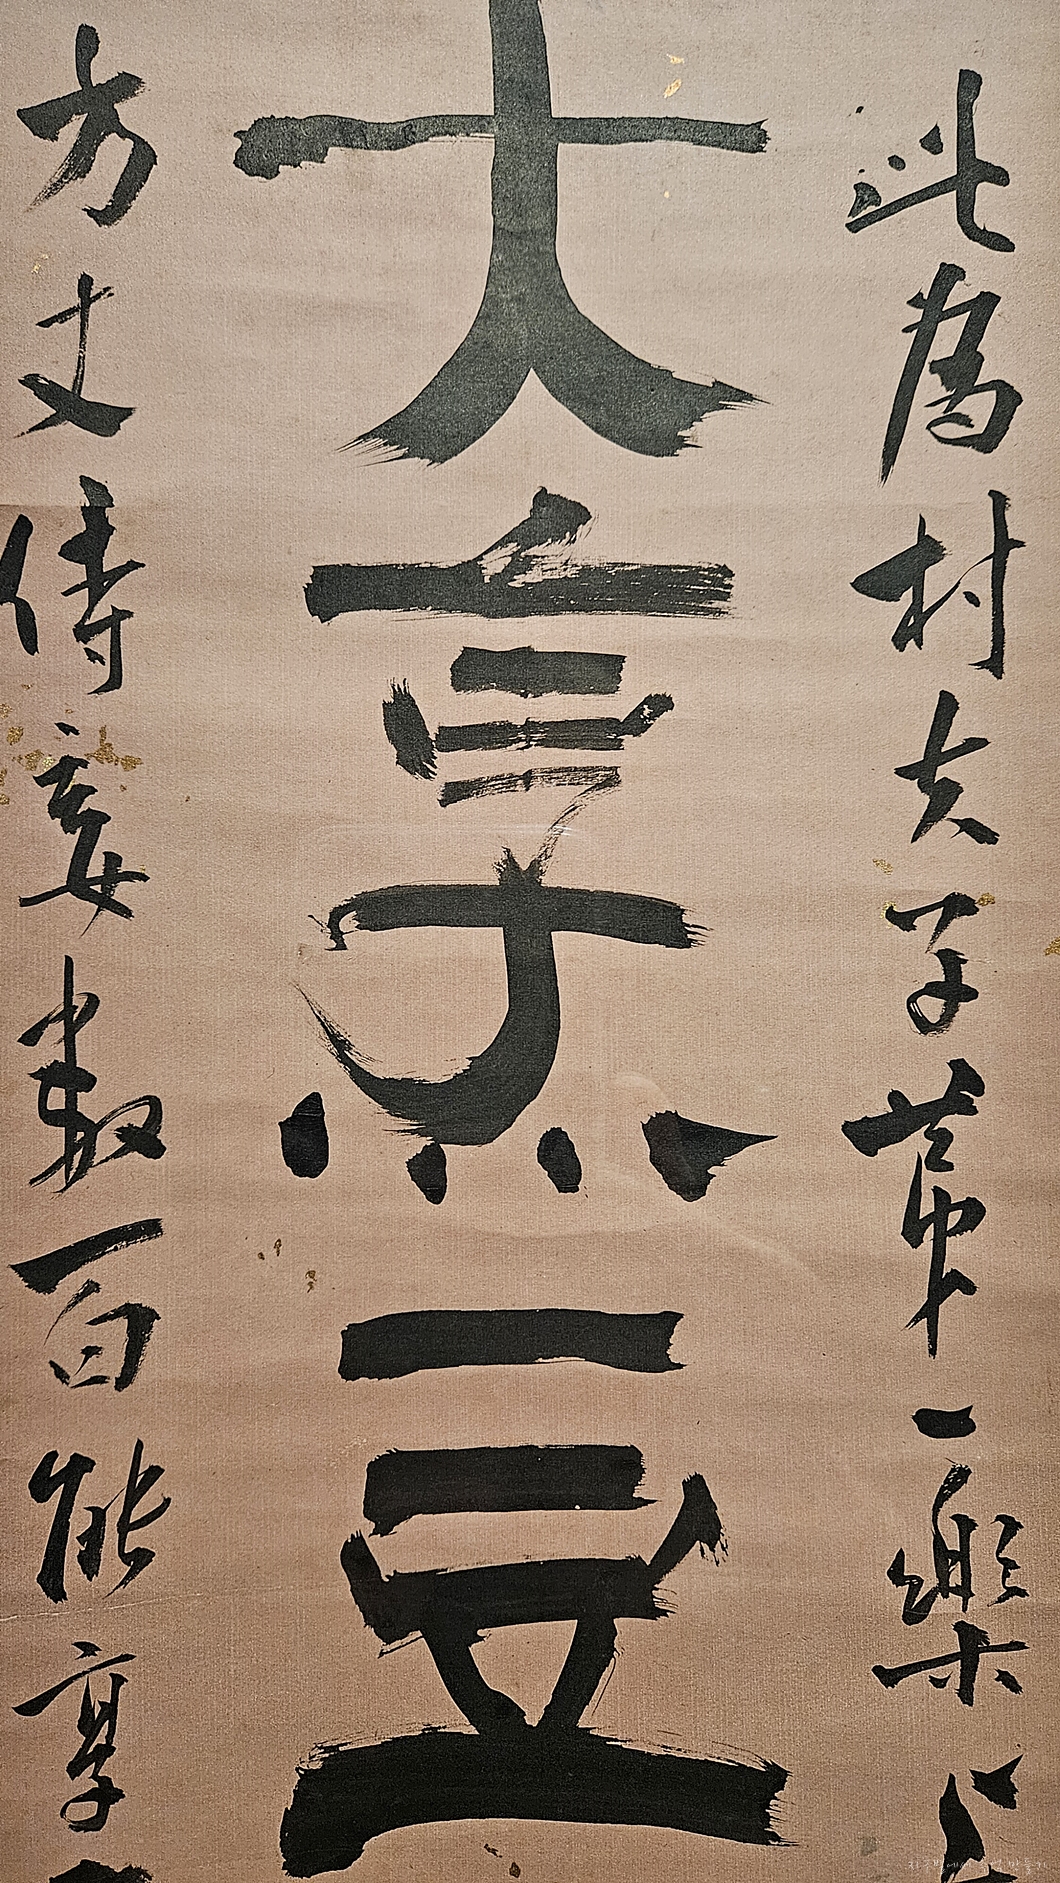 此爲村夫子第一樂上
大烹豆
方丈侍妾數百能享